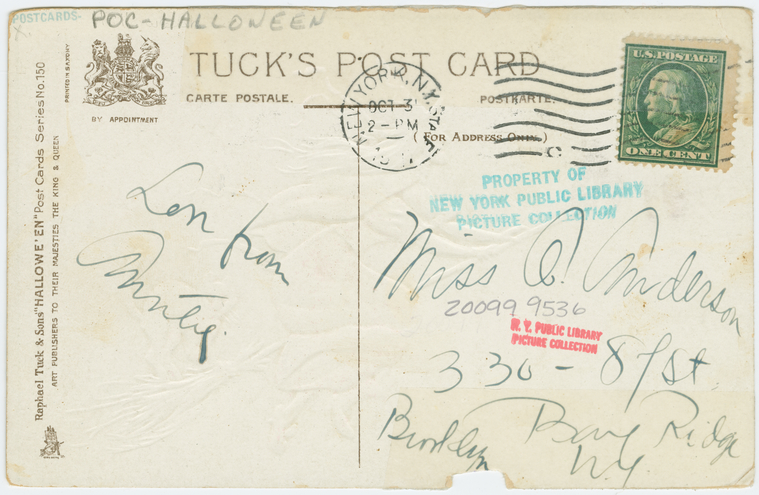 POSTCARDS-
POC-HALLOWEEN
TUCK'S POST CARD
CARTE POSTALE.
POSTKARTE.
(FOR ADDRESS ONLY.)
BY APPOINTMENT
PRINTED IN SAXONY
Raphael Tuck & Sons' "HALLOWE'EN" Post Cards Series No. 150
ART PUBLISHERS TO THEIR MAJESTIES THE KING & QUEEN
NEW YORK, N.Y. STA
OCT 31
2-PM
C
U.S. POSTAGE
ONE CENT
PROPERTY OF
NEW YORK PUBLIC LIBRARY
PICTURE COLLECTION
from
Aunty.
Miss A. Anderson
20099 9536
N. Y. PUBLIC LIBRARY
PICTURE COLLECTION
330 - 87 St.
Brooklyn Bay Ridge
N.Y.